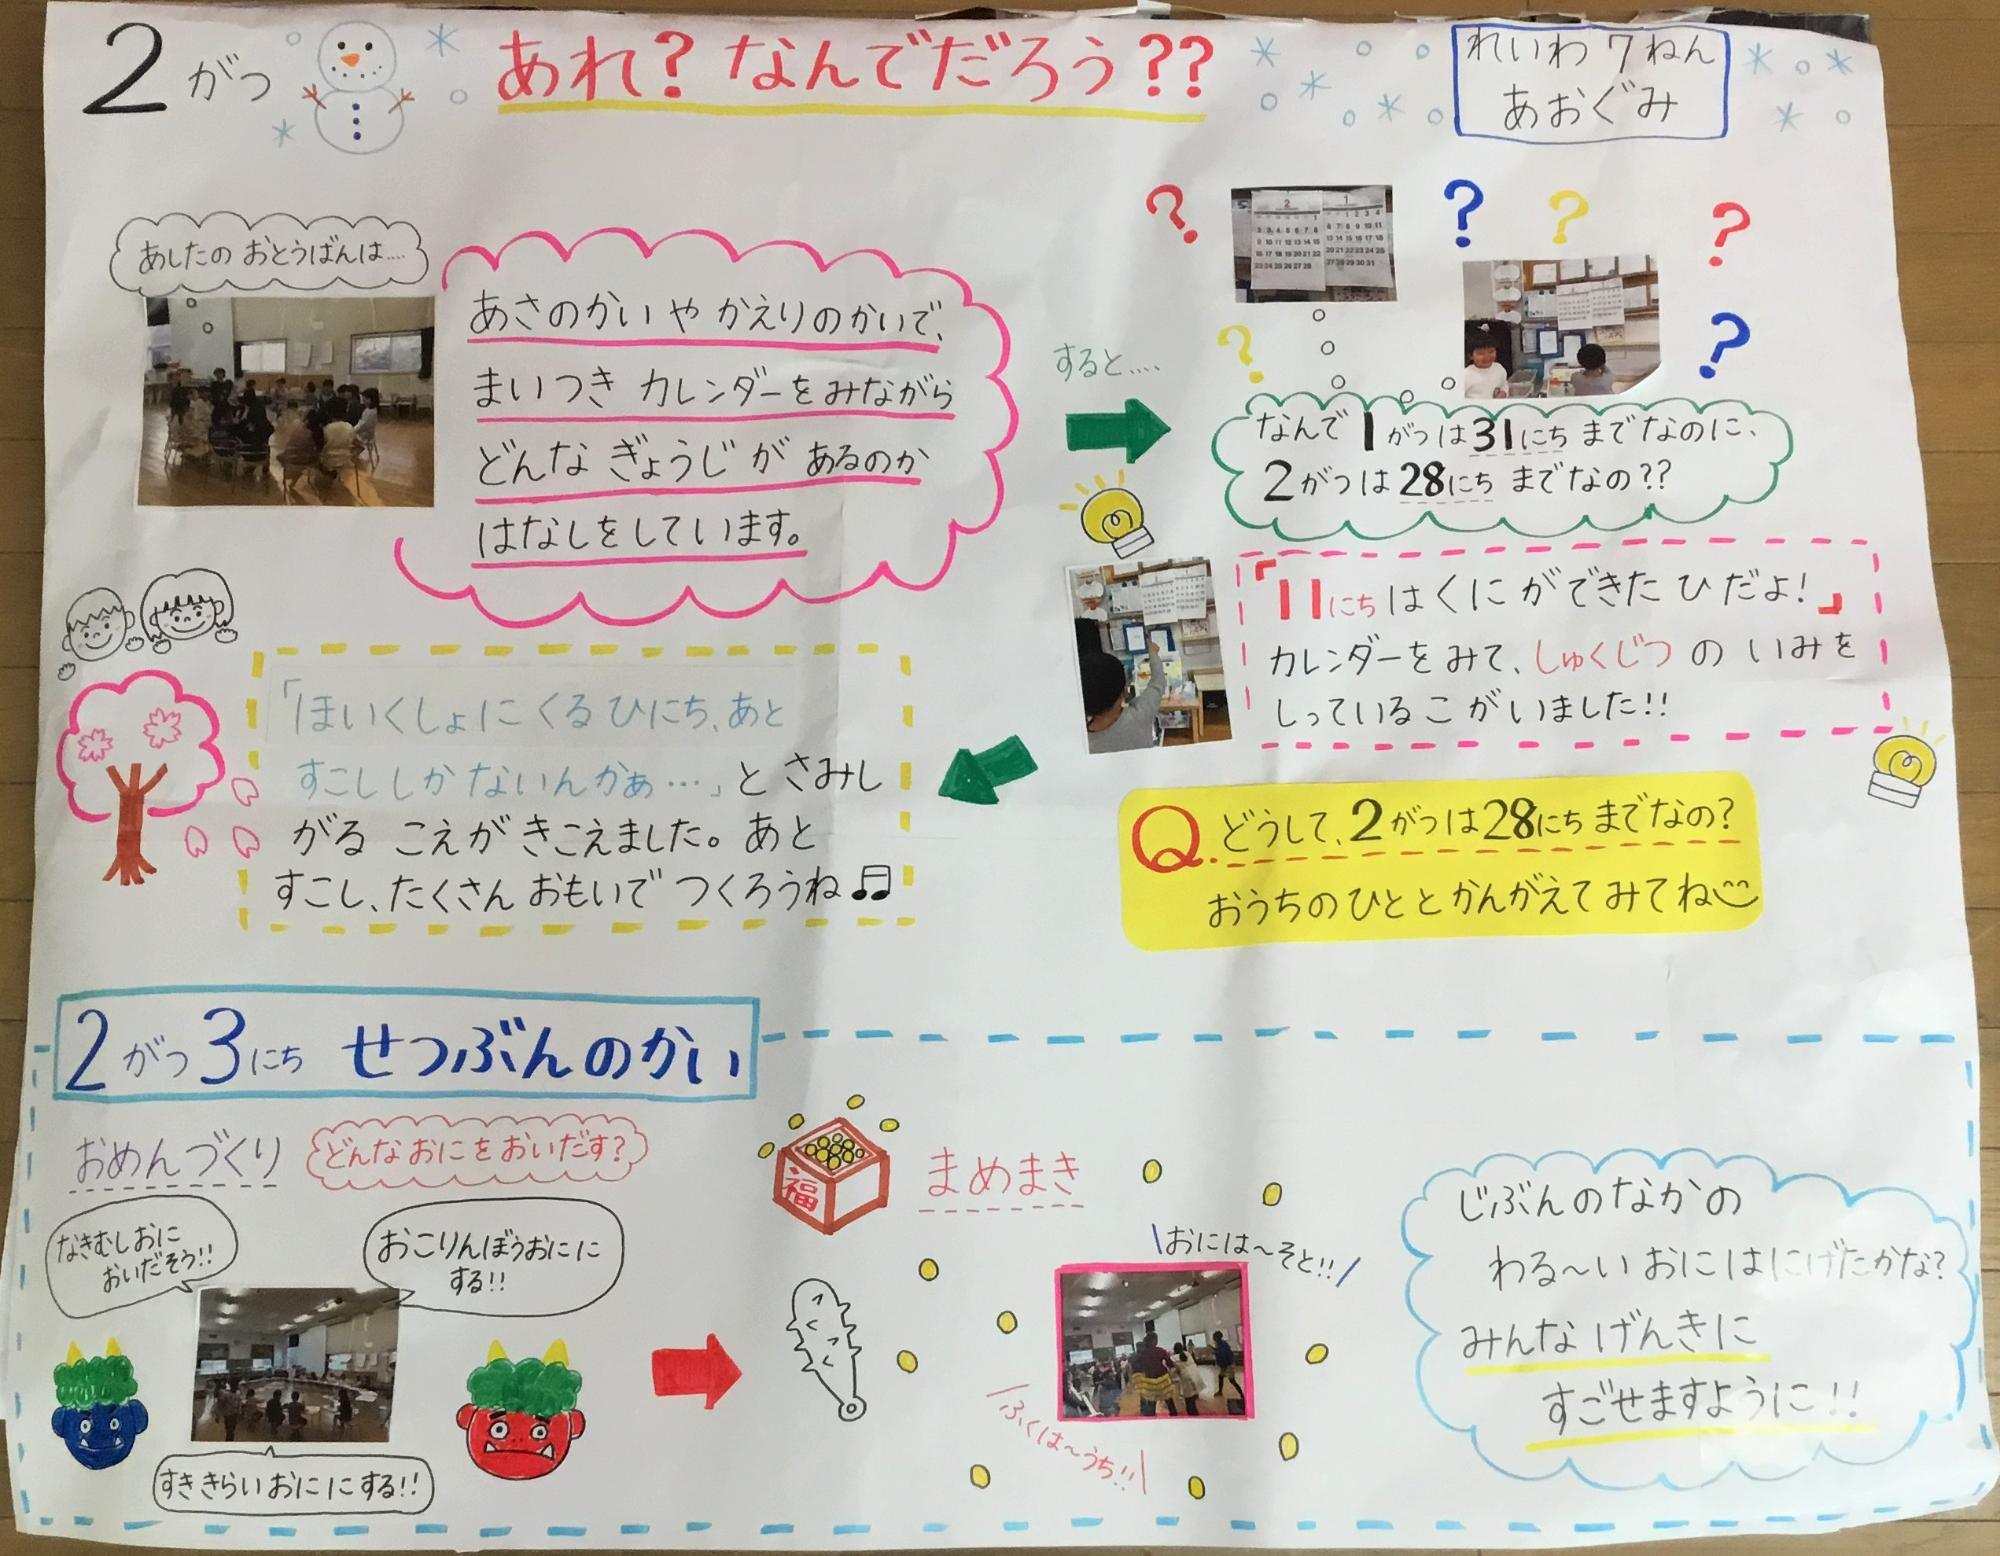 2がつ
あれ？なんでだろう？？
れいわ 7ねん
あおぐみ
あしたの おとうばんは‥‥
あさのかい や かえりのかいで、
まいつき カレンダーをみながら
どんな ぎょうじ が あるのか
はなしをしています。
すると‥‥
なんで 1がつは31にち までなのに、
2がつは 28にち までなの??
「11にち はくに ができた ひだよ!」
カレンダーを みて、しゅくじつ の いみを
しっているこ がいました!!
Q.どうして、2がつは28にち までなの?
おうちのひとと かんがえて みてね
「ほいくしょに くる ひにち、あと
すこししか ないんかぁ…」と さみし
がる こえが きこえました。あと
すこし、たくさん おもいで つくろうね♫
2がつ3にち せつぶんのかい
おめんづくり
どんなおにをおいだす?
なきむしおに
おいだそう!!
おこりんぼうおにに
する!!
すききらいおににする!!
福
まめまき
おには〜そと!!
ふくは〜うち!!
じぶんのなかの
わる〜い おにはにげたかな?
みんな げんきに
すごせますように!!